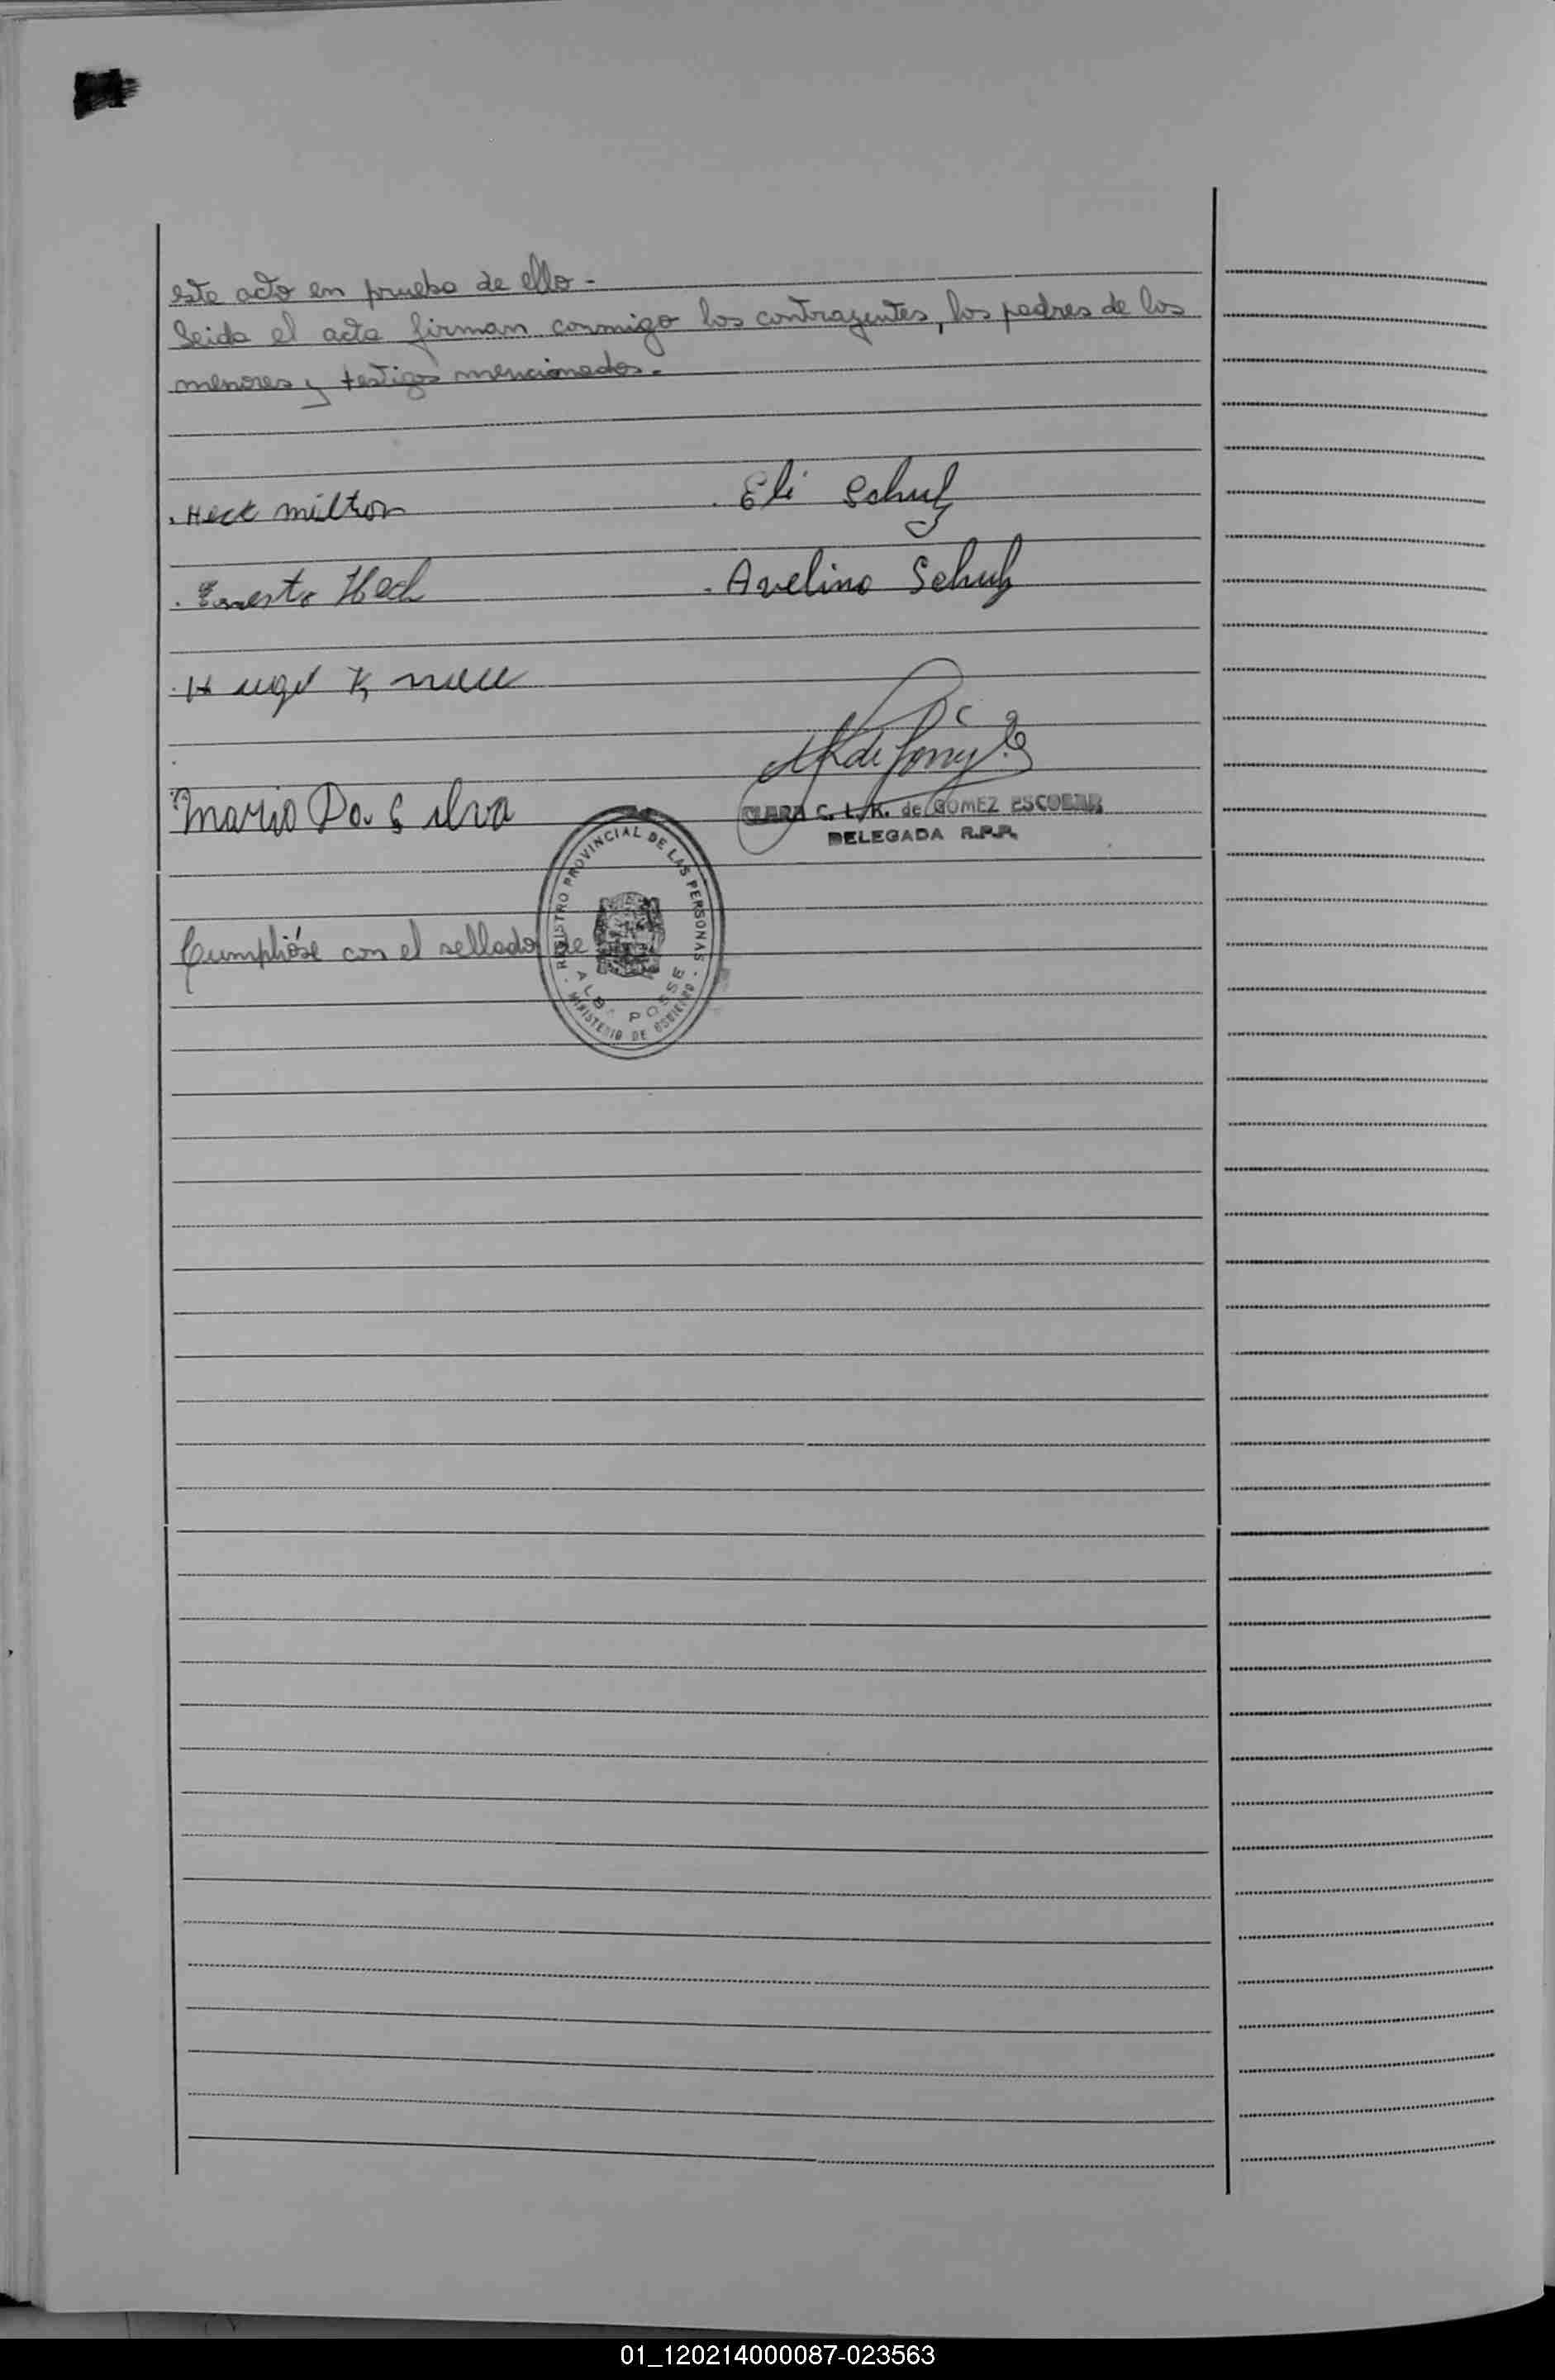 este acto en prueba de ello.-
Leida el acta firman conmigo los contrayentes, los padres de los
menores y testigos mencionados.-
Heck milton
Eli Schulz
Ernesto Heck
Avelino Schulz
Hugo
Mario Da Silva
CLARA C. L. K. de GOMEZ ESCOBAR
DELEGADA R.P.P.
Cumplióse con el sellado de
REGISTRO PROVINCIAL DE LAS PERSONAS
ALBA POSSE
MINISTERIO DE GOBIERNO
01_120214000087-023563